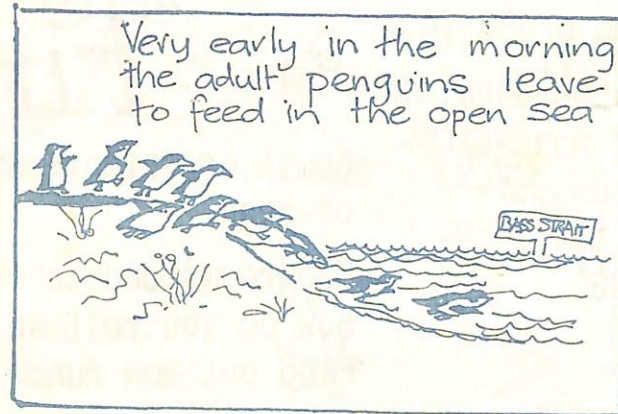 Very early in the morning
the adult penguins leave
to feed in the open sea
BASS STRAIT